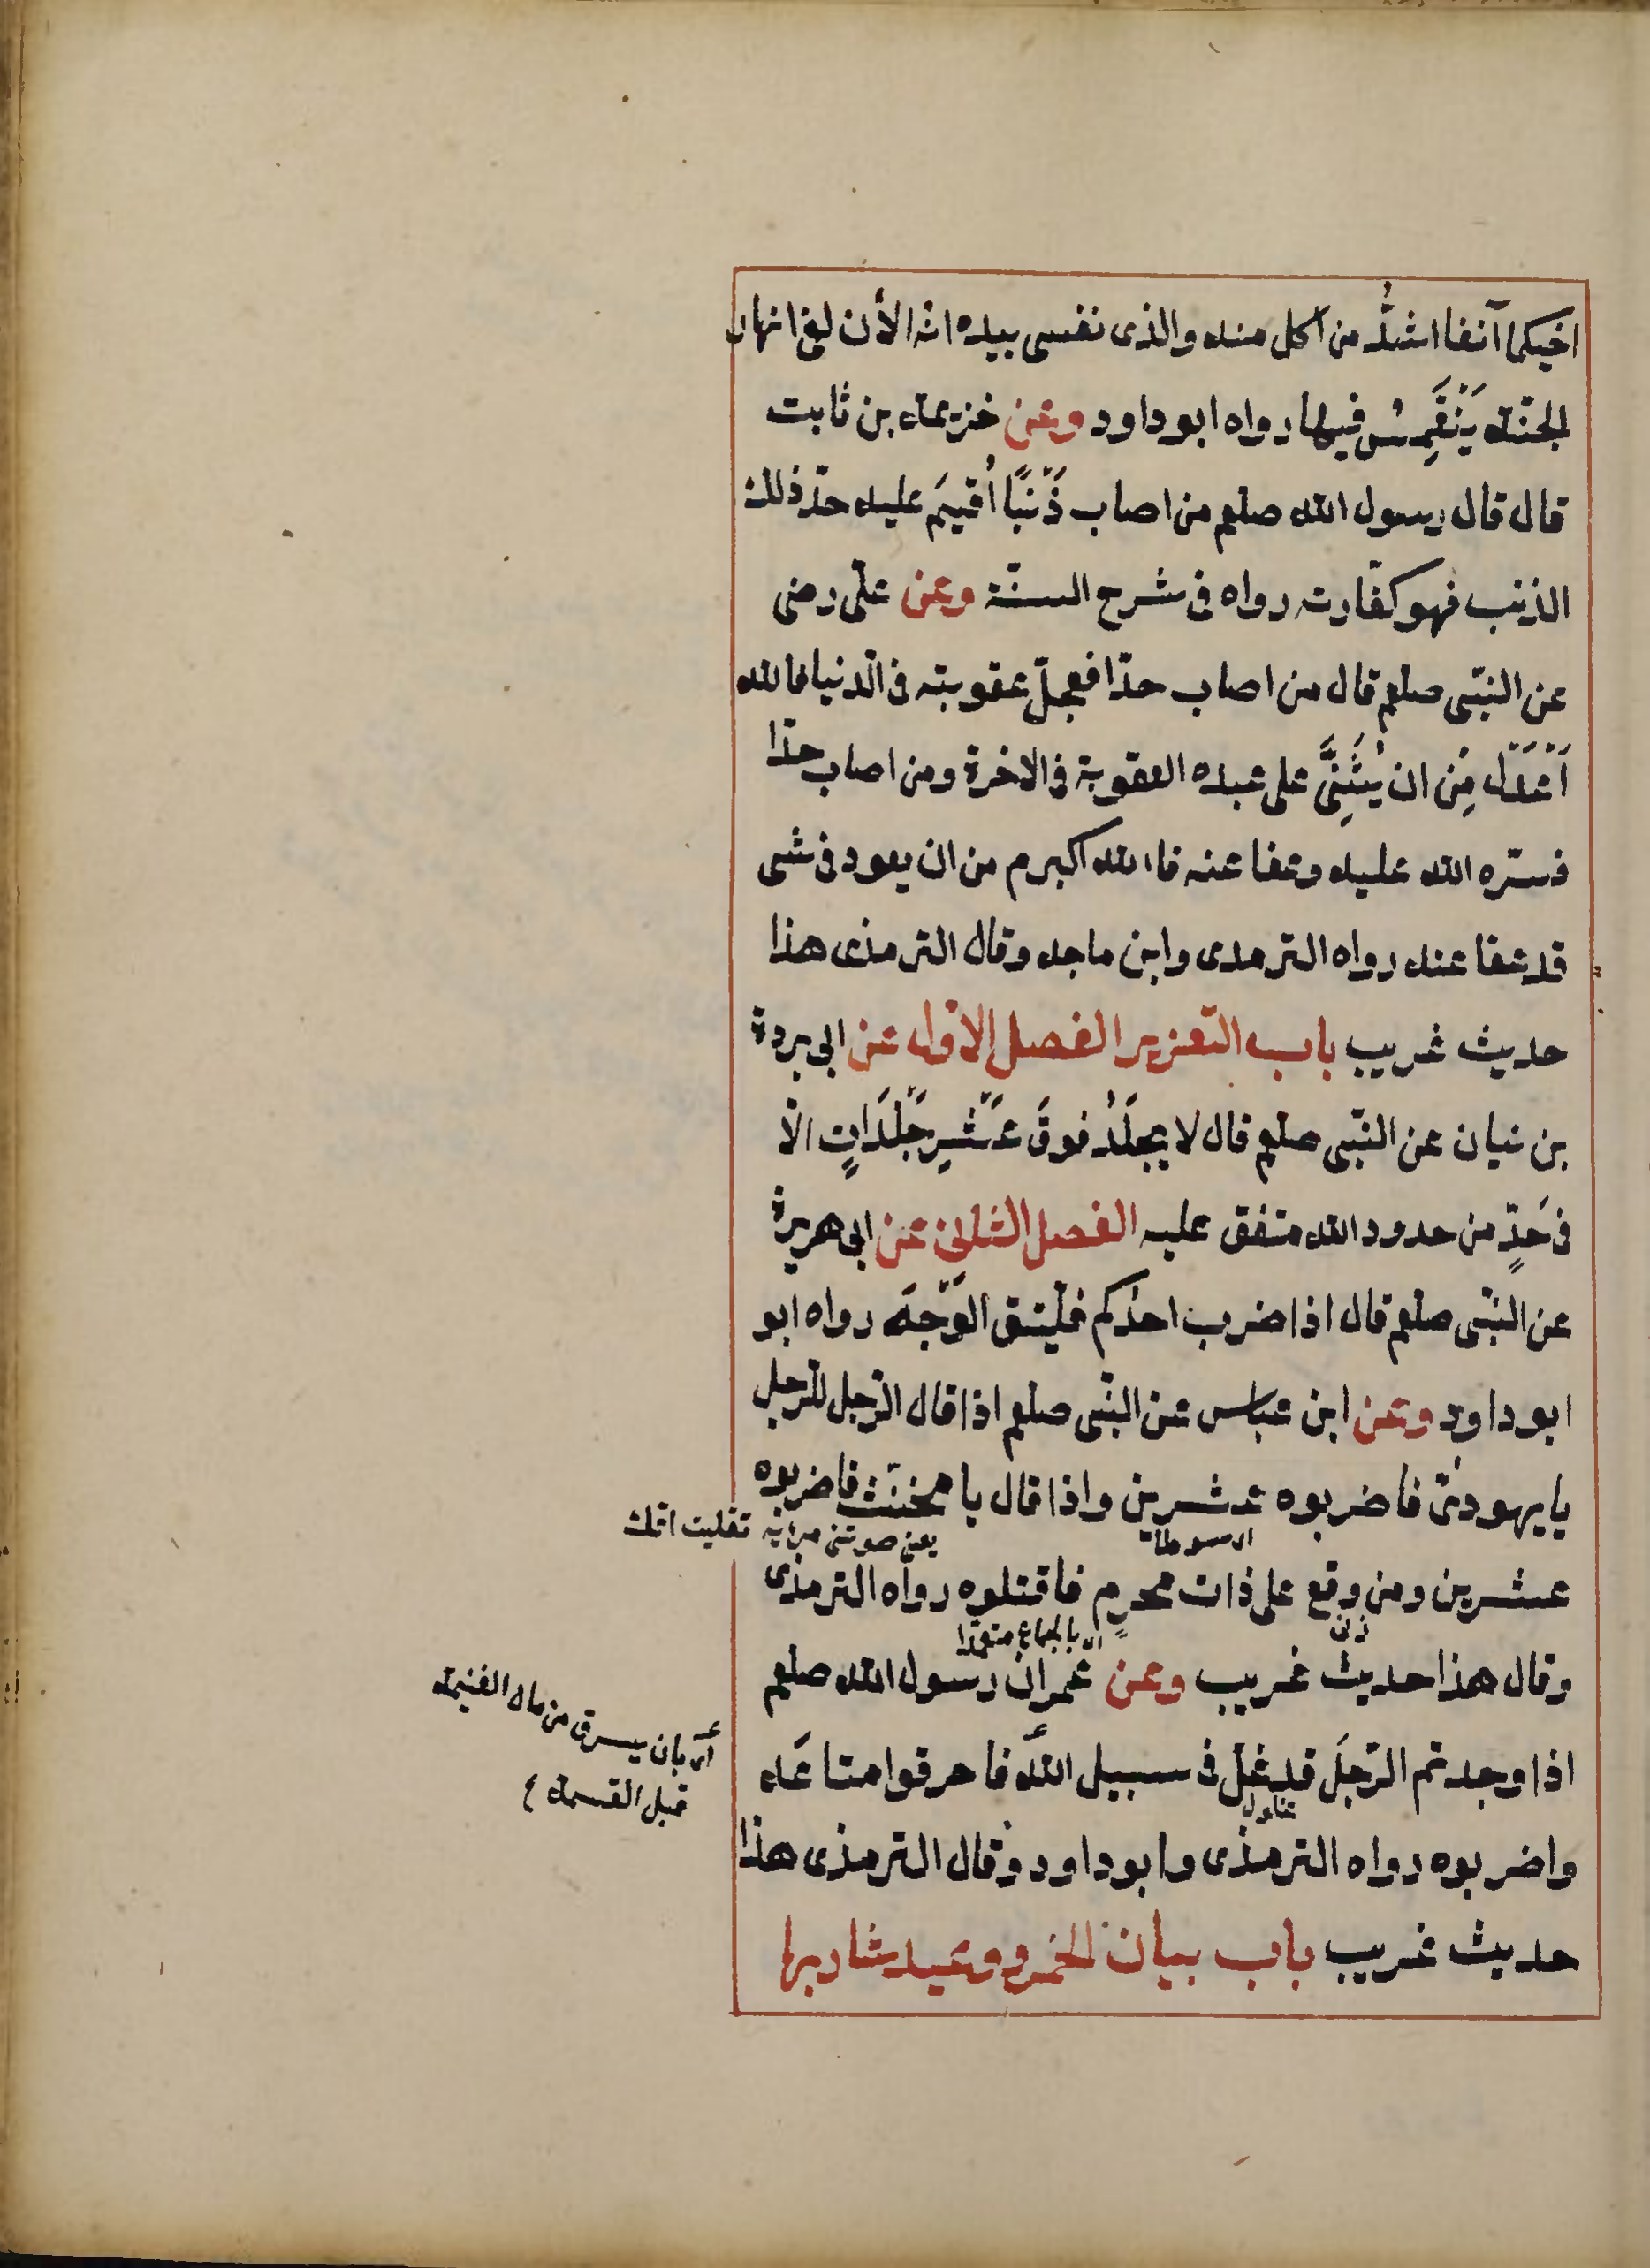 اخيكما آنفا اشدُّ من اكل منه والذى نفسى بيده انّه الأن لفى انهار
الجنّة يَنْقَمِسُ فيها رواه ابو داود وعن خزيمة بن ثابت
قال قال رسول الله صلعم من اصاب ذَنْبًا أُقيمَ عليه حدّ ذلك
الذنب فهو كفّارته رواه فى شرح السنّة وعن علّى رضى
عن النبّى صلعم قال من اصاب حدّا فعجلّ عقوبته فى الّدنيا فالله
اَعْدَل مِن ان يُثَنِىَّ على عبده العقوبة فى الاخرة ومن اصاب حدّا
فستره الله عليه وعفا عنه فاالله اكرم من ان يعود فى شى
قد عفا عنه رواه الترمدى وابن ماجه وقال الترمذى هذا
حديث غريب باب التّعزير الفصل الاوّل عن ابى بردة
بن نيان عن النبّى صلعم قال لا يجلَدُ فوقَ عَشْرِ جَلْدَاتٍ الّا
فى حَدٍّ من حدود الله متفق عليه الفصل الثانى عن ابى هريرة
عن النبّى صلعم قال اذا ضرب احدُكم فليْتق الوَجْهَ رواه ابو
ابو داود وعن ابن عباس عن النبّى صلعم اذا قال الرّجل للرّجل
يا يهودىّ فاضربوه عشرين واذا قال يا مخنّث فاضربوه
اى سوطا
عشرين ومن وقع على ذات محرمٍ فاقتلوه رواه الترمذى
زنى
اى بالجماع متعمّدا
وقال هذا حديث غريب وعن عمران رسول الله صلعم
اذا وجدتم الرّجلَ قد غلّ فى سبيل اللَّه فاحرقوا متاعَه
واضربوه رواه الترمذى وابو داود وقال الترمذى هذا
حديث غريب باب بيان الخمر ووعيد شاربها
اى بان يسرق من مال الغنيمة
قبل القسمة